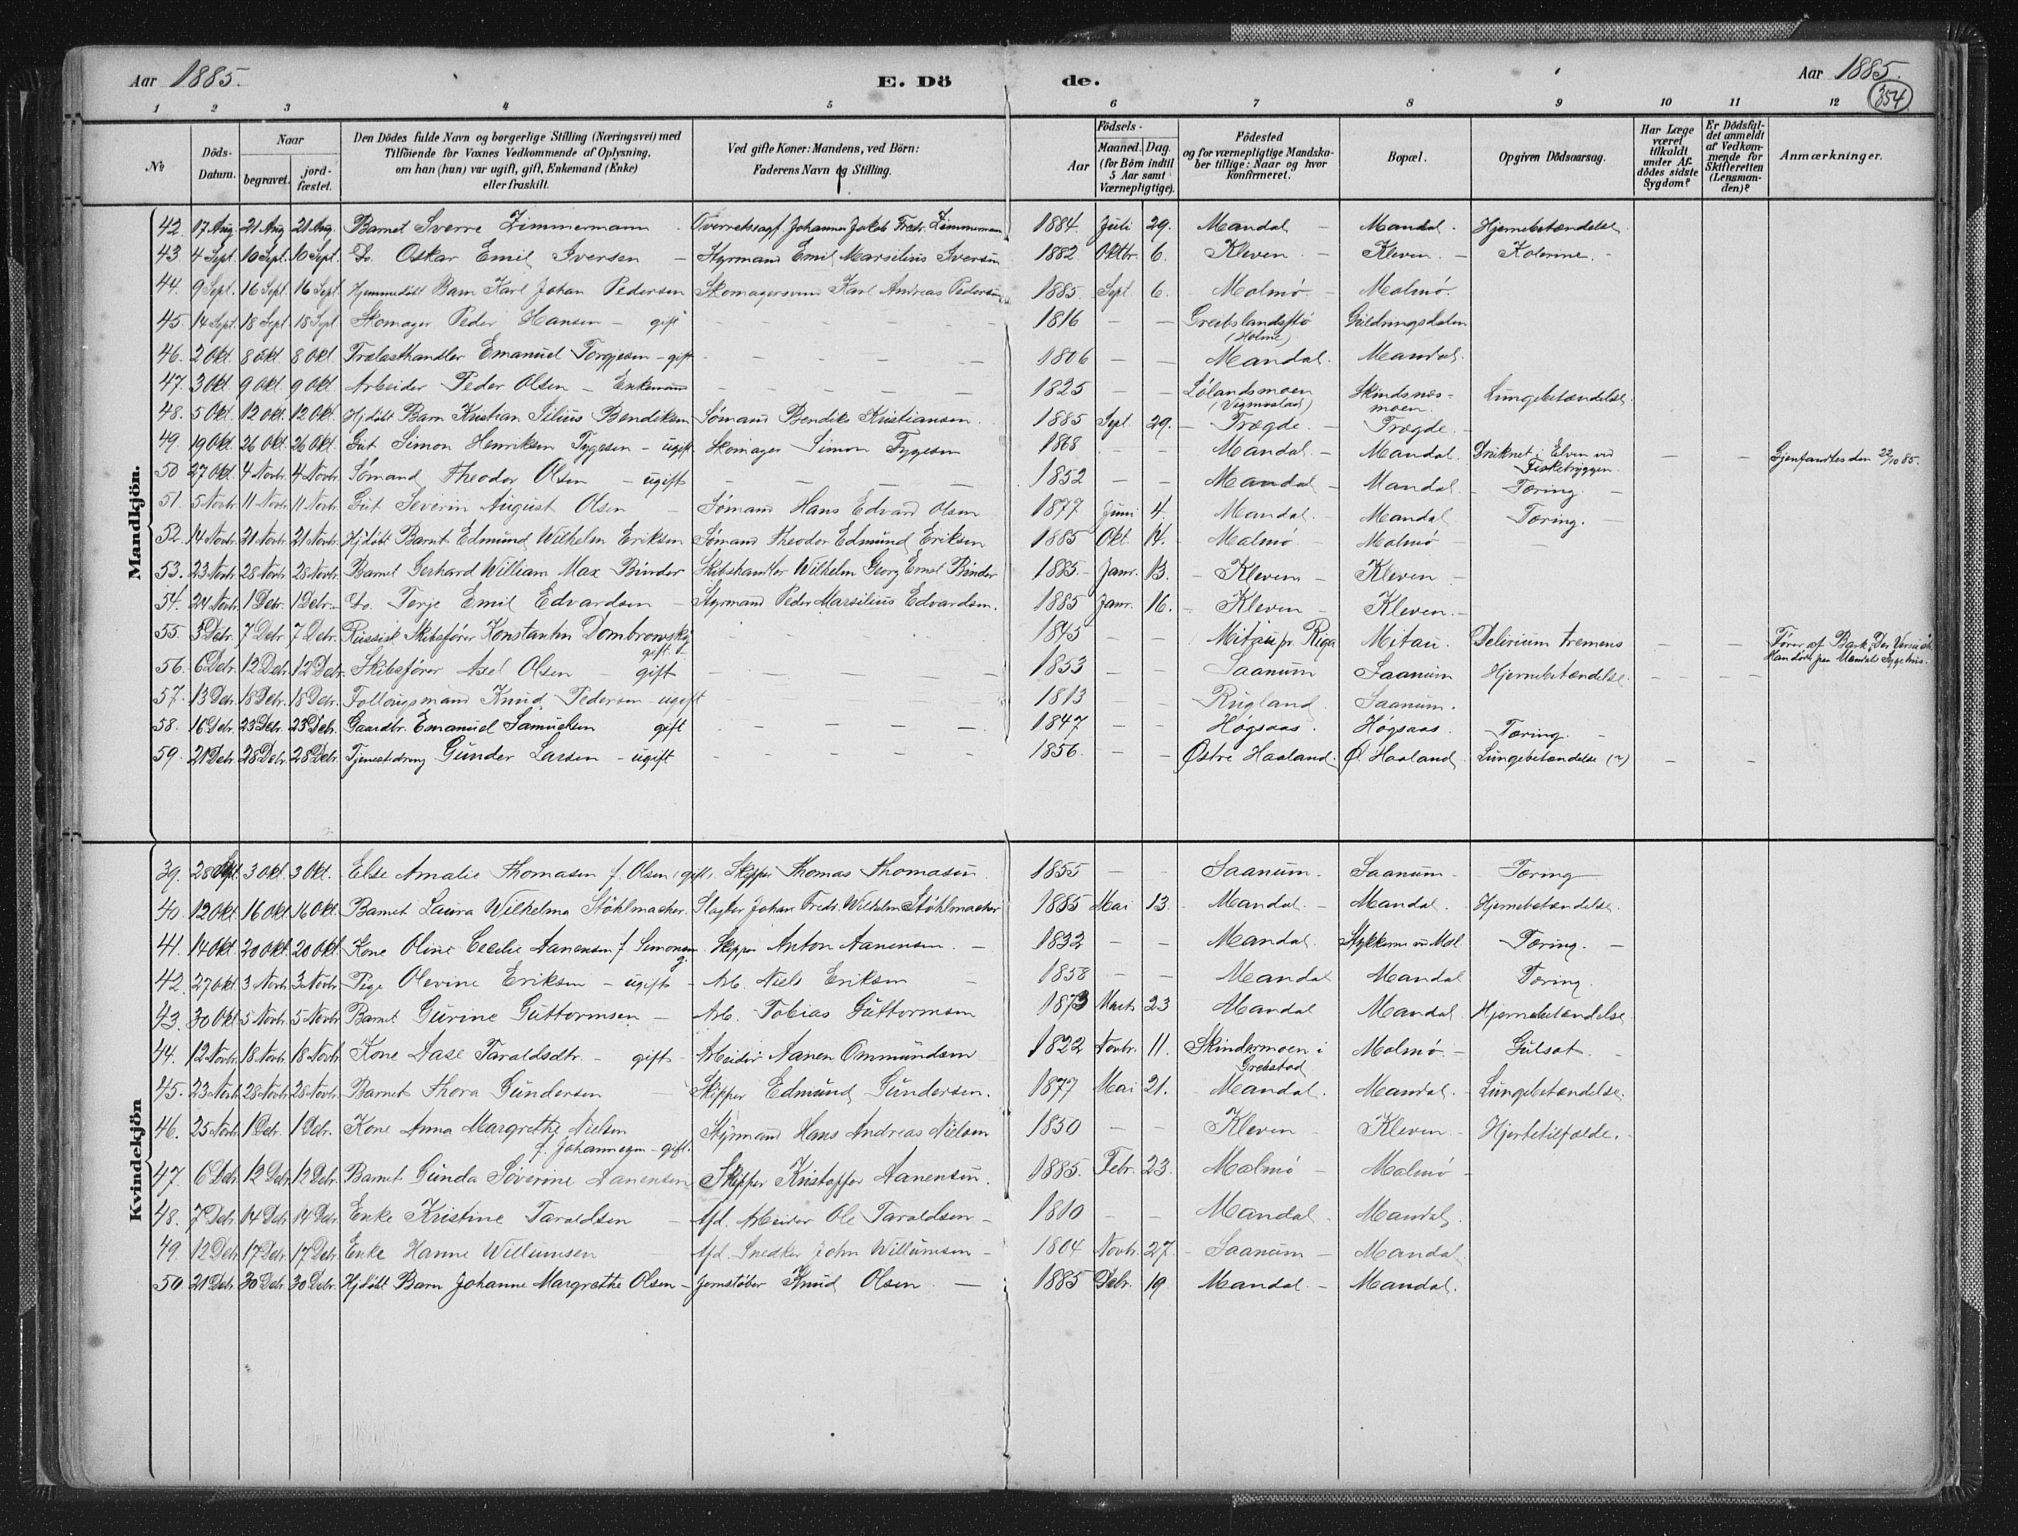 Aar 1885.
E. Dö de.
Aar 1885.
354
1 2 3 4 5 6 7 8 9 10 11 12
No
Döds-Datum.
Naar
begravet.
jordfæstet.
Den Dödes fulde Navn og borgerlige Stilling (Næringsvei) med
Tilföiende for Voxnes Vedkommende af Oplysning,
om han (hun) var ugift, gift, Enkemand (Enke)
eller fraskilt.
Ved gifte Koner: Mandens, ved Börn:
Faderens Navn og Stilling.
Födsels-
Aar
Maaned. Dag.
(for Börn indtil
5 Aar samt
Værnepligtige).
Födested
og for værnepligtige Mandskaber tillige: Naar og hvor
konfirmeret.
Bopæl.
Opgiven Dödsaarsag.
Har Læge
været
tilkaldt
under Afdödes sidste
Sygdom?
Er Dödsfaldet anmeldt
af Vedkommende for
Skifteretten
(Lensmanden)?
Anmærkninger.
Mandkjön.
42. 17 Aug. 21 Aug 21 Aug. Barnet Sverre Zimmermann Johannes Jakob Fredr. Zimmermann 1884. Juli 29. Mandal – Mandal. Hjernebetændelse
43. 4 Sept. 10 Sept. 10 Sept. Do. Oskar Emil Iversen – Styrmand Emil Marsilius Iversen 1882 Oktbr. 6. Kleven. – Kleven. – Kolerine. –
44. 9 Sept. 16 Sept. 16 Sept. Hjemmedöbt Barn Karl Johan Pedersen Skomagersvend Karl Andreas Pedersen 1885. Sept. 6. Malmö. – Malmö.
45. 14 Sept. 18 Sept. 18 Sept. Skomager Peder Hansen – gift 1816 – – Greibslandsstö (Holme)
46. 2 Okt. 8 Okt. 8 Okt. Trælasthandler Emanuel Torgjesen – gift 1806 – – Mandal. Mandal.
47. 3 Okt. 9 Okt. 9 Okt. Arbeider Peder Olsen – Enkemand 1825 – – Lölandsmoen (Vigmostad) Skindsnes-moen. Lungebetændelse.
48. 5 Okt. 12 Okt. 12 Okt. Hjdöbt Barn Kristian Bendiksen Sömand Bendiks Kristiansen. 1885 Sept. 29. – Tregde. – Tregde.
49. 19 Okt. 26 Okt. 26 Okt. Gut Simon Henriksen Tygesen – ugift Skomager Simon Tygesen 1868 – – Mandal. – Mandal. Druknet i Elven ved Fiskebryggen. – – Gjenfandtes den 22/10 85.
50 27 Okt. 4 Novbr. 4 Novbr. Sömand Theodor Olsen – ugift 1852 – – Mandal – Mandal. – Tæring. –
51. 5 Novbr. 11 Novbr. 11 Novbr. Gut Severin August Olsen – Sömand Hans Edvard Olsen 1877 Juni 4. Mandal. – Mandal Tæring. –
52. 14 Novbr. 21 Novbr. 21 Novbr. Hjdöbt Barnet Edmund Wilhelm Eriksen Sömand Theodor Edmund Eriksen 1885 Okt. 14. – Malmö – Malmö –
53. 23 Novbr. 28 Novbr. 28 Novbr. Barnet Gerhard William Max Binder Skibshandler Wilhelm Georg Ernst Binder 1885 – Janr. 13. – Kleven – Kleven –
54. 24 Novbr. 1 Debr. 1 Debr. Do. Terje Emil Edvardsen – Styrmand Peder Marsilius Edvardsen. 1885 Janr. 16. – Kleven – Kleven. –
55. 3 Debr. 7 Debr. 7 Debr. Russisk Skibsförer Konstantin Dombrowsky gift. 1845 – – Mitau pr. Riga Mitau. Delirium tremens – – Förer af Bark. Döde paa Mandals Sygehus.
56. 6 Debr. 12 Debr. 12 Debr. Skibsförer Axel Olsen – gift 1853 – – Saanum Saanum Hjernebetændelse. – – –
57. 13 Debr. 18 Debr. 18 Debr. Follougsmand Knud Pedersen – ugift 1813 – Rugland. Saanum.
58. 16 Debr. 23 Debr. 23 Debr. Gaardbr. Emanuel Samuelsen gift 1847 – – Högsaas. Högsaas. Tæring. –
59. 21 Debr. 28 Debr. 28 Debr. Tjenestedreng Gunder Larsen – ugift 1856. – – Östre Haaland. Ö. Haaland. Lungebetændelse (?) – –
Kvindekjön
39. 28 Sept. 3 Okt. 3 Okt. Else Amalie Thomasen f. Olsen, gift. Skipper Thomas Thomasen. 1855 – – Saanum. Saanum – Tæring –
40. 12 Okt. 16 Okt. 16 Okt. Barnet Laura Wilhelma Stöhlmacher. Slagter Johan Fredr. Wilhelm Stöhlmacher 1885 Mai 13. – Mandal. – Mandal. Hjernebetændelse.
41. 14 Okt. 20 Okt. 20 Okt. Kone Oline Cecilie Aanensen f. Simonsen g. Skipper Anton Aanensen. – 1832 – – Mandal. Tæring. –
42. 27 Okt. 3 Novbr. 3 Novbr. Pige Olevine Eriksen – ugift – Arb. Niels Eriksen – 1858 – – Mandal Mandal Tæring.
43. 30 Okt. 5 Novbr. 5 Novbr. Barnet Gurine Guttormsen – Arb. Tobias Guttormsen 1873 Marts 23 Mandal Mandal. Hjernebetændelse
44. 12 Novbr. 18 Novbr. 18 Novbr. Kone Aase Taraldsdtr. – gift – Arbeider Aanen Ommundsen 1822 Novbr. 11. Skindermoen i Grebstad Malmö. – Gulsot. –
45. 23 Novbr. 28 Novbr. 28 Novbr. Barnet Thora Gundersen – Skipper Edmund Gundersen. 1877 Mai 21. – Mandal. Mandal. – Lungebetændelse.
46. 25 Novbr. 1 Debr. 1 Debr. Kone Anna Margrethe Nielsen f. Johannesen – gift. Styrmand Hans Andreas Nielsen 1850 – – Kleven Kleven – Hjertetilfælde. –
47. 6 Debr. 12 Debr. 12 Debr. Barnet Gunda Söverine Aanensen Skipper Kristoffer Aanensen. 1885. Febr. 23. Malmö – Malmö –
48. 7 Debr. 14 Debr. 14 Debr. Enke Kristine Taraldsen – Afd. Arbeider Ole Taraldsen – 1810 – – Mandal. Mandal.
49. 12 Debr. 17 Debr. 17 Debr. Enke Hanne Willumsen Afd. Snedker John Willumsen – 1804 Novbr. 27. – Saanum – Mandal
50. 21 Debr. 30 Debr. 30 Debr. Hjdöbt Barn Johanne Margrethe Olsen – Jernstöber Knud Olsen. – 1885 Debr. 19. Mandal – Mandal.